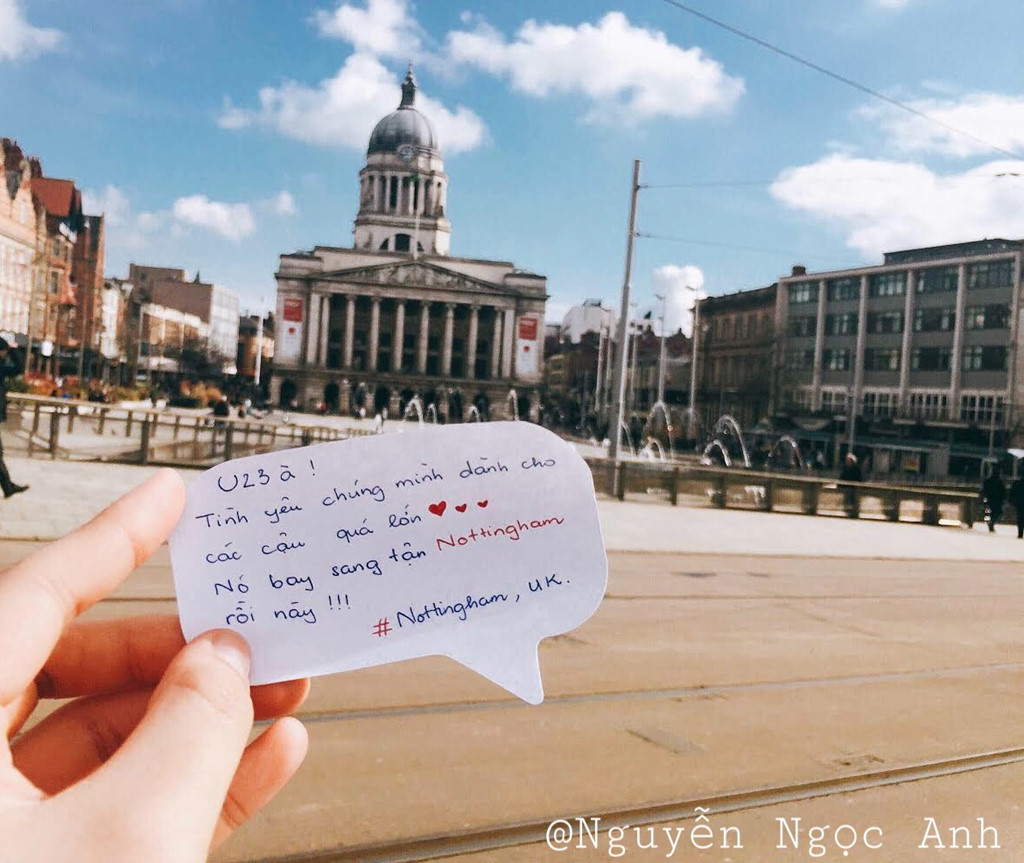 U23 à !
Tình yêu chúng mình dành cho
các cậu quá lớn
Nó bay sang tận Nottingham
rồi này !!!
#Nottingham, UK.
@Nguyễn Ngọc Anh